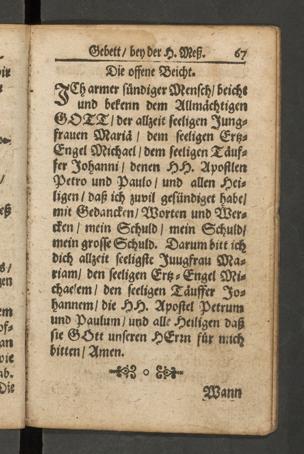 Gebett / bey der H. Meß. 67
Die offene Beicht.
ICh armer sündiger Mensch / beicht
und bekenn dem Allmächtigen
GOTT / der allzeit seeligen Jung-
frauen Mariä / dem seeligen Ertz-
Engel Michael / dem seeligen Täuf-
fer Johanni / denen HH. Apostlen
Petro und Paulo / und allen Hei-
ligen / daß ich zuvil gesündiget habe /
mit Gedancken / Worten und Wer-
cken / mein Schuld / mein Schuld /
mein grosse Schuld. Darum bitt ich
dich allzeit seeligste Juugfrau Ma-
riam / den seeligen Ertz-Engel Mi-
chaelem / den seeligen Täuffer Jo-
hannem / die HH. Apostel Petrum
und Paulum / und alle Heiligen daß
sie GOtt unseren HErrn für mich
bitten / Amen.
Wann